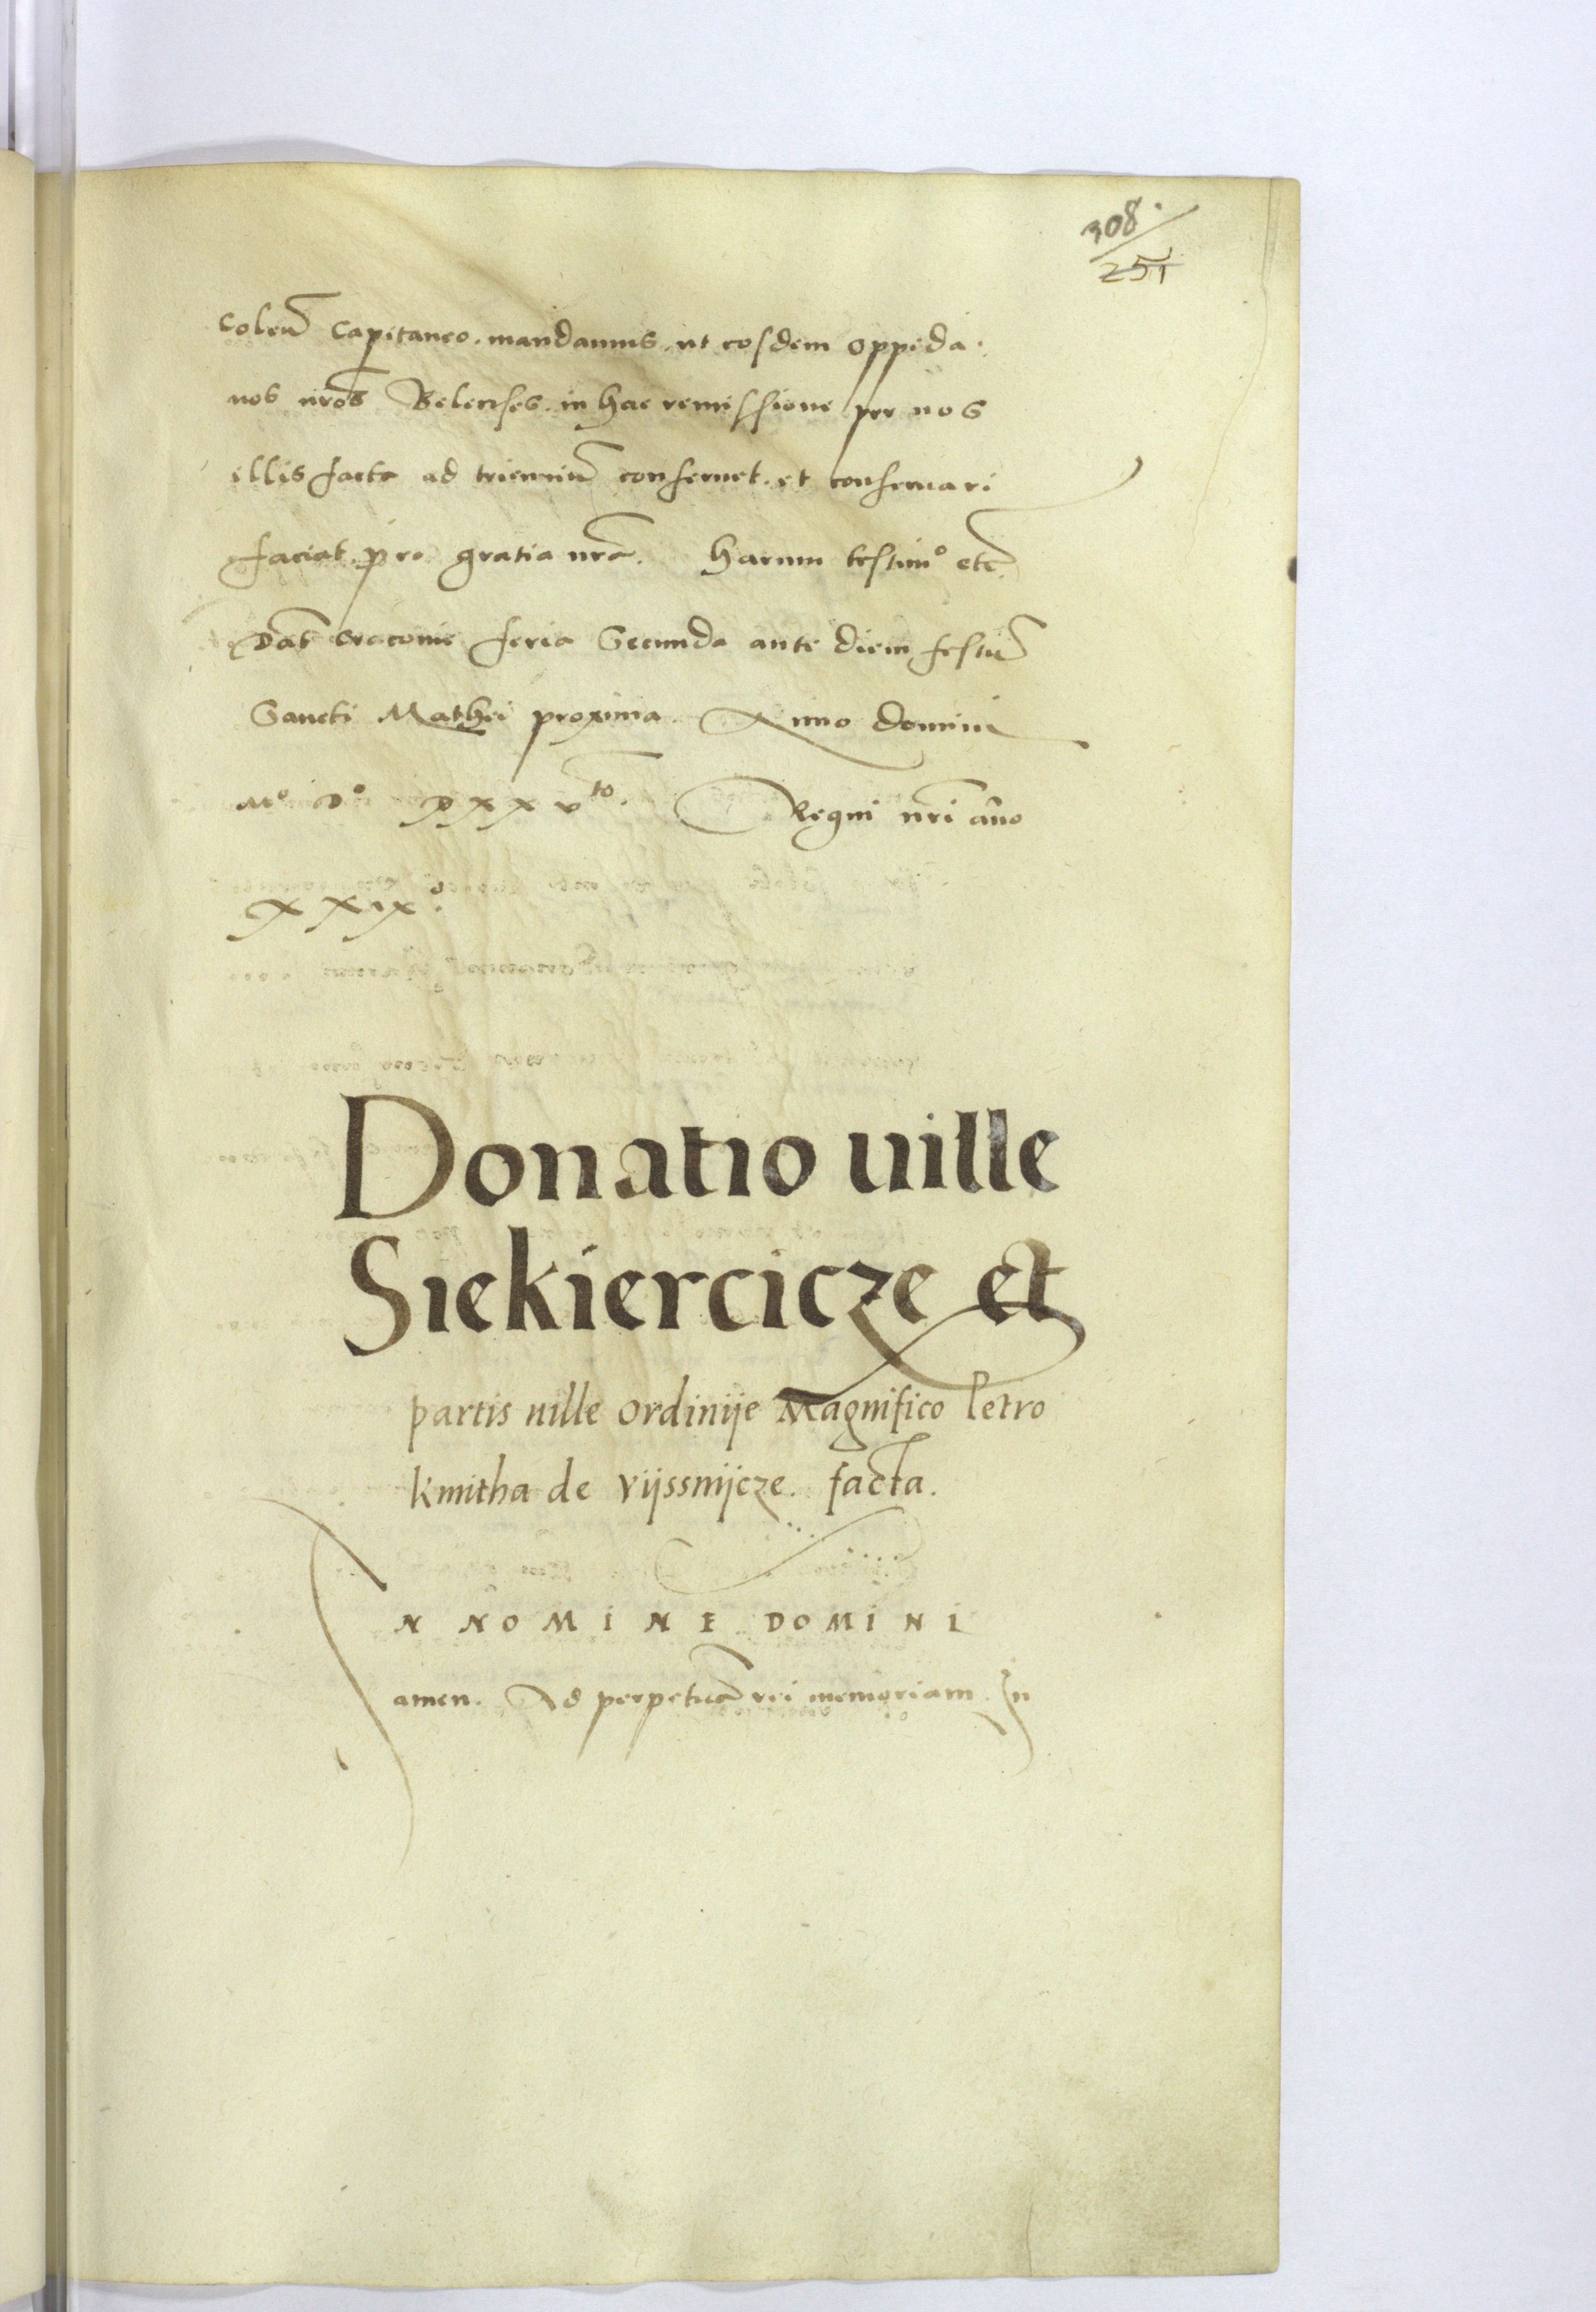 308.
251
coleñ Capitaneo. mandamus. ut eosdem oppida.
nos nr̃os Belenses. in hac remissione per nos
illis facta ad trienniũ conseruet. et conseruari
faciat. pro gratia nr̃a. Harum testim° etc̃.
Dat̃ Cracouie feria Secunda ante diem festũ
Sancti Mathei proxima. Anno domini
M° D° XXXVto. Regni nr̃i año
XXIX°.
Donatio uille
Siekiercicze et
partis uille Ordinije Magnifico Petro
kmitha de vijssnijcze. facta.
IN NOMINE DOMINI
amen. Ad perpetuã rei memoriam. In